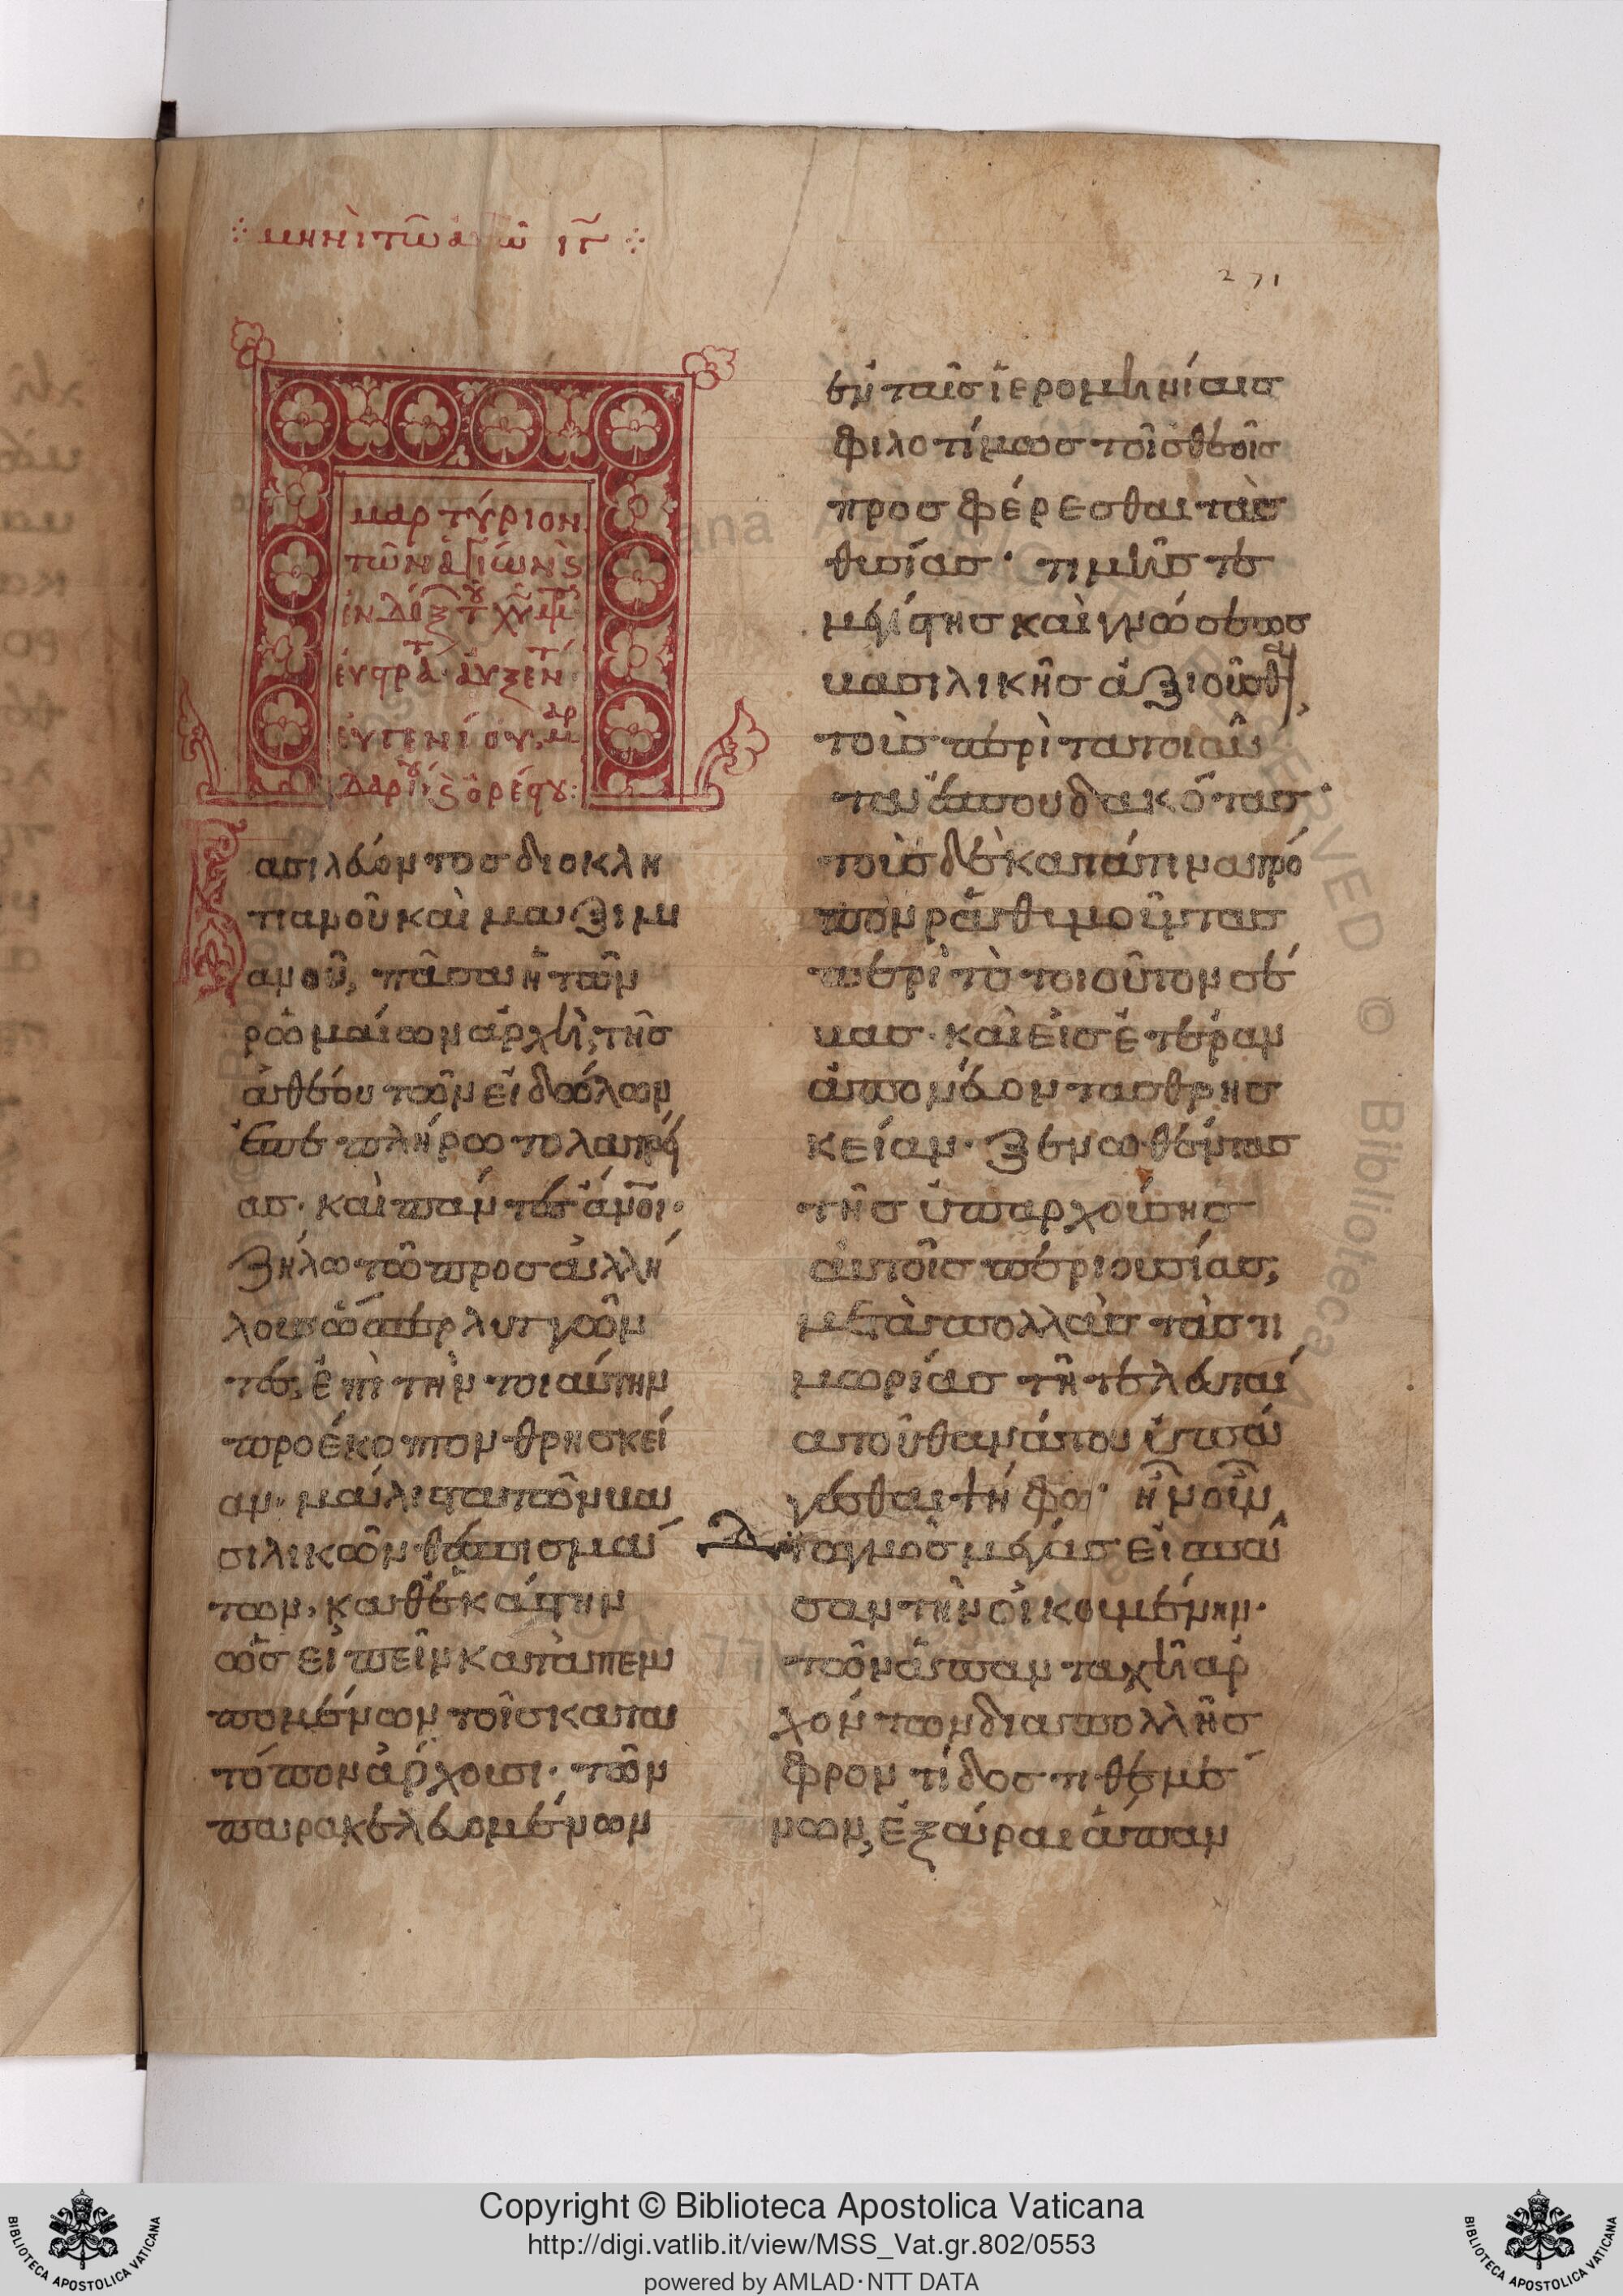 μηνὶ τῶ αὐτῶ ιγ
271
μαρτύριον
τῶν ἁγίων κς
ἐνδόξ τοῦ χυ μ
ἐυστρατ αυξεντ
ἐυγενίου, μαρ
δαρίου, κς ὀρέστου:
Βασιλεύοντος διοκλη
τιανοῦ καὶ μαξιμι
ανοῦ, πᾶσα ἡ τῶν
ρωμαίων ἀρχὴ, τῆς
ἀθέου τῶν εἰδώλων
ἐπεπλήρωτο λατρεί
ας· καὶ πάντες ἄνοι·
ζήλω τῶ προς ἀλλή
λους ὥσπερ λυττῶν
τες, ἐπὶ τὴν τοιαύτην
προέκοπτον θρησκεί
αν· μάλιστα τῶν βα
σιλικῶν θεσπισμά
των, καθεκάστην
ὡς εἰπεῖν καταπεμ
πομένων τοῖς κατα
τόπον ἄρχουσι· τῶν
παρακελευομένων
ἐν ταῖς ἱερομηνίαις
φιλοτίμως τοῖς θεοῖς
προσφέρεσθαι τὰς
θυσίας· τιμῆς τε
μεγίστης καὶ γνώσεως
βασιλικῆς ἀξιοῦσθαι,
τοὺς περὶ τὰ τοιαῦ
τα ἐσπουδακότας·
τοὺς δὲ κατά τινα τρό
πον ῥαθυμοῦντας
περὶ τὸ τοιοῦτον σέ
βας· καὶ εἰς ἑτέραν
ἀπονεύοντας θρησ
κείαν· ξενωθέντας
τῆς ὑπαρχούσης
αὐτοῖς περιουσίας,
μετὰ πολλὰς τὰς τι
μωρίας τῆ τελευταί
α τοῦ θανάτου ὑπά
γεσθαι ψήφω· ἦν οὖν
διωγμὸς μέγας εἰς πᾶ
σαν τὴν οἰκουμένην·
τῶν ἁπανταχῆ ἀρ
χόντων διαπολλῆς
φροντίδος τιθεμέ
νων, ἐξᾶραι ἅπαν
Copyright © Biblioteca Apostolica Vaticana
http://digi.vatlib.it/view/MSS_Vat.gr.802/0553
powered by AMLAD·NTT DATA
BIBLIOTECA APOSTOLICA VATICANA
BIBLIOTECA APOSTOLICA VATICANA